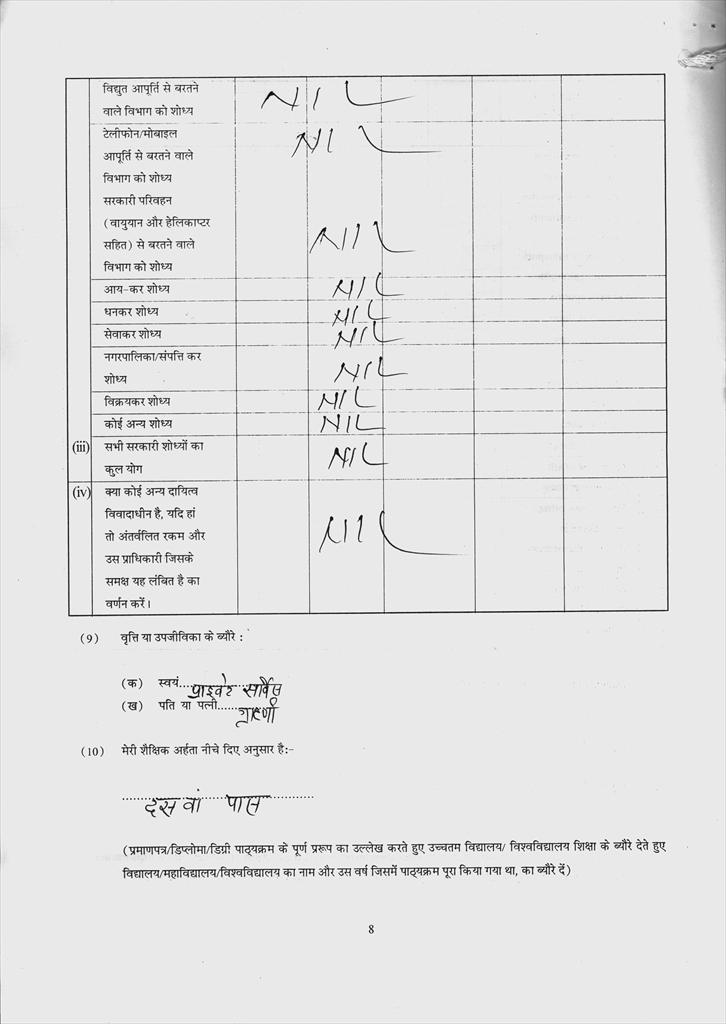 विद्युत आपूर्ति से बरतने
वाले विभाग को शोध्य NIL
टेलीफोन/मोबाइल NIL
आपूर्ति से बरतने वाले
विभाग को शोध्य
सरकारी परिवहन
(वायुयान और हेलिकाप्टर
सहित) से बरतने वाले NIL
विभाग को शोध्य
आय-कर शोध्य NIL
धनकर शोध्य NIL
सेवाकर शोध्य NIL
नगरपालिका/संपत्ति कर
शोध्य NIL
विक्रयकर शोध्य NIL
कोई अन्य शोध्य NIL
(iii) सभी सरकारी शोध्यों का
कुल योग NIL
(iv) क्या कोई अन्य दायित्व
विवादाधीन है, यदि हां
तो अंतर्वलित रकम और NIL
उस प्राधिकारी जिसके
समक्ष यह लंबित है का
वर्णन करें।
(9) वृत्ति या उपजीविका के ब्यौरे :
(क) स्वयं.... प्राइवेट सर्विस
(ख) पति या पत्नी...... गृहणी
(10) मेरी शैक्षिक अर्हता नीचे दिए अनुसार है:-
दसवां पास
(प्रमाणपत्र/डिप्लोमा/डिग्री पाठ्यक्रम के पूर्ण प्ररूप का उल्लेख करते हुए उच्चतम विद्यालय/ विश्वविद्यालय शिक्षा के ब्यौरे देते हुए
विद्यालय/महाविद्यालय/विश्वविद्यालय का नाम और उस वर्ष जिसमें पाठ्यक्रम पूरा किया गया था, का ब्यौरे दें)
8